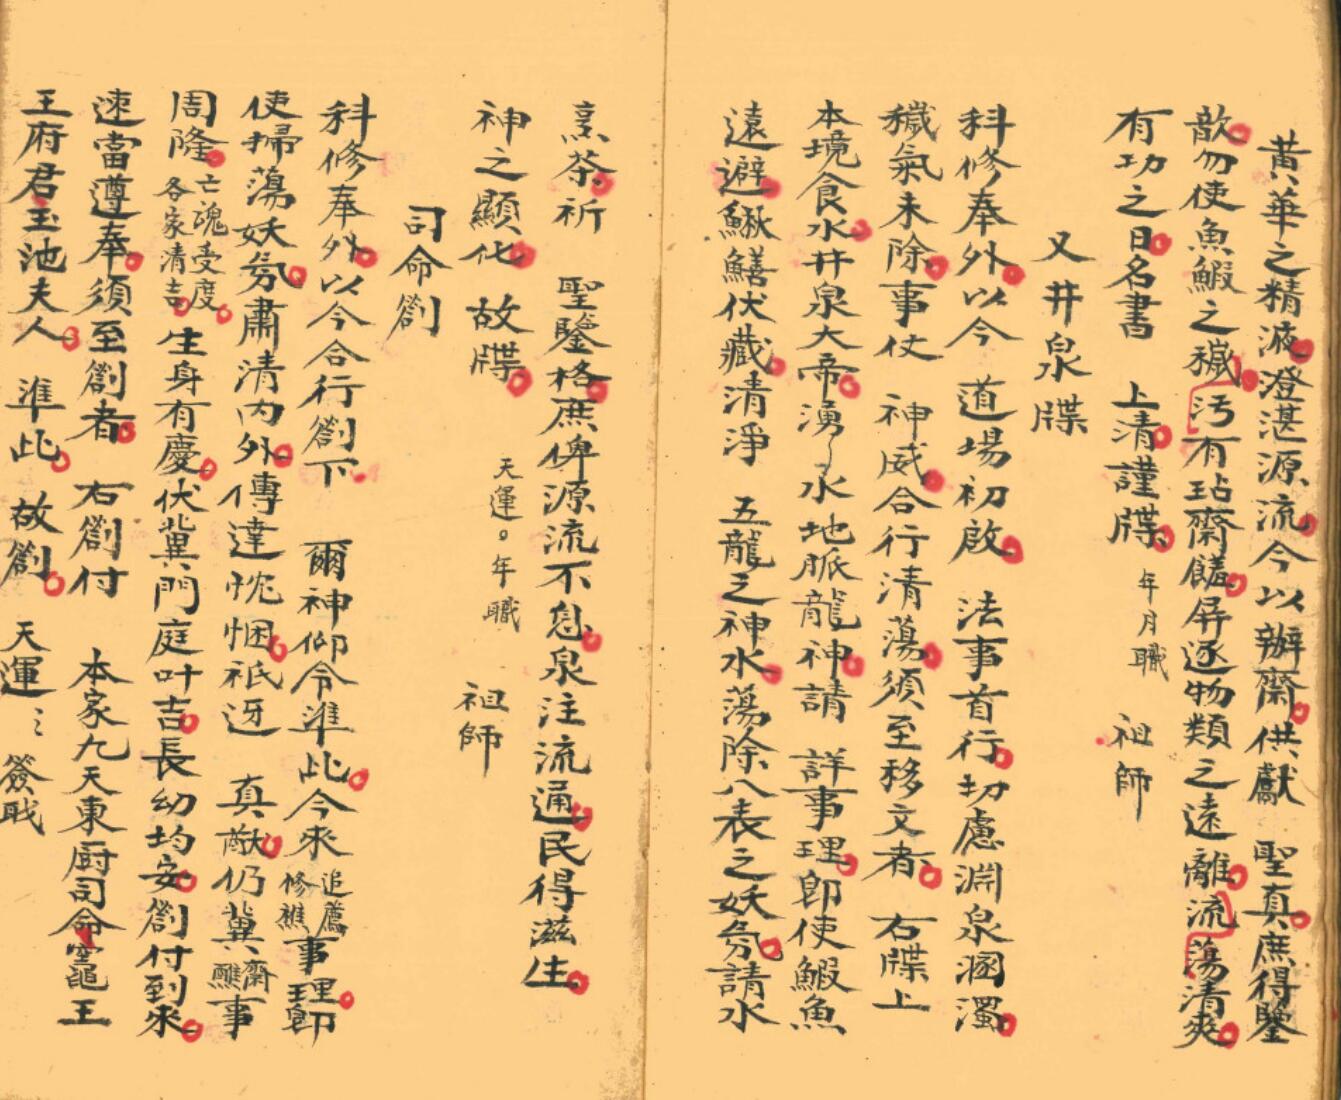 黃華之精液澄湛源流今以辦齋供獻 聖真庶得鑒
歆勿使魚鰕之穢污有玷齋饈屏逐物類之遠離流蕩清爽
有功之日名書 上清謹牒 年月職 祖師
又井泉牒
科修奉外以今 道場初啟 法事首行切慮淵泉溷濁
穢氣未除事仗 神威合行清蕩須至移文者 右牒上
本境食水井泉大帝湧〻水地脈龍神請 詳事理即使鰕魚
遠避鰍鱔伏藏清淨 五龍之神水蕩除八表之妖氛請水
烹茶祈 聖鑒格庶俾源流不息泉注流通民得滋生
神之顯化 故牒 天運。年職 祖師
司命劄
科修奉外以今合行劄下 爾神仰令准此今來追薦修樵事理即
使掃蕩妖氛肅清內外傳達忱悃祇迓 真猷仍冀齋醮事
周隆亡魂受度各家清吉生身有慶伏冀門庭叶吉長幼均安劄付到來
速當遵奉須至劄者 右劄付 本家九天東厨司命竈王
王府君玉池夫人 準此 故劄 天運〻 簽戝